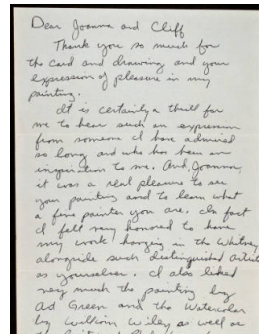 Dear Joanna and Cliff
Thank you so much for
the card and drawing and your
expression of pleasure in my
painting.
It is certainly a thrill for
me to hear such an expression
from someone I have admired
so long and who has been an
inspiration to me. And, Joanna,
it was a real pleasure to see
your painting and to learn what
a fine painter you are. In fact
I felt very honored to have
my work hanging in the Whitney
alongside such distinguished artists
as yourselves. I also liked
very much the painting by
Art Green and the Watercolor
by William Wiley, as well as